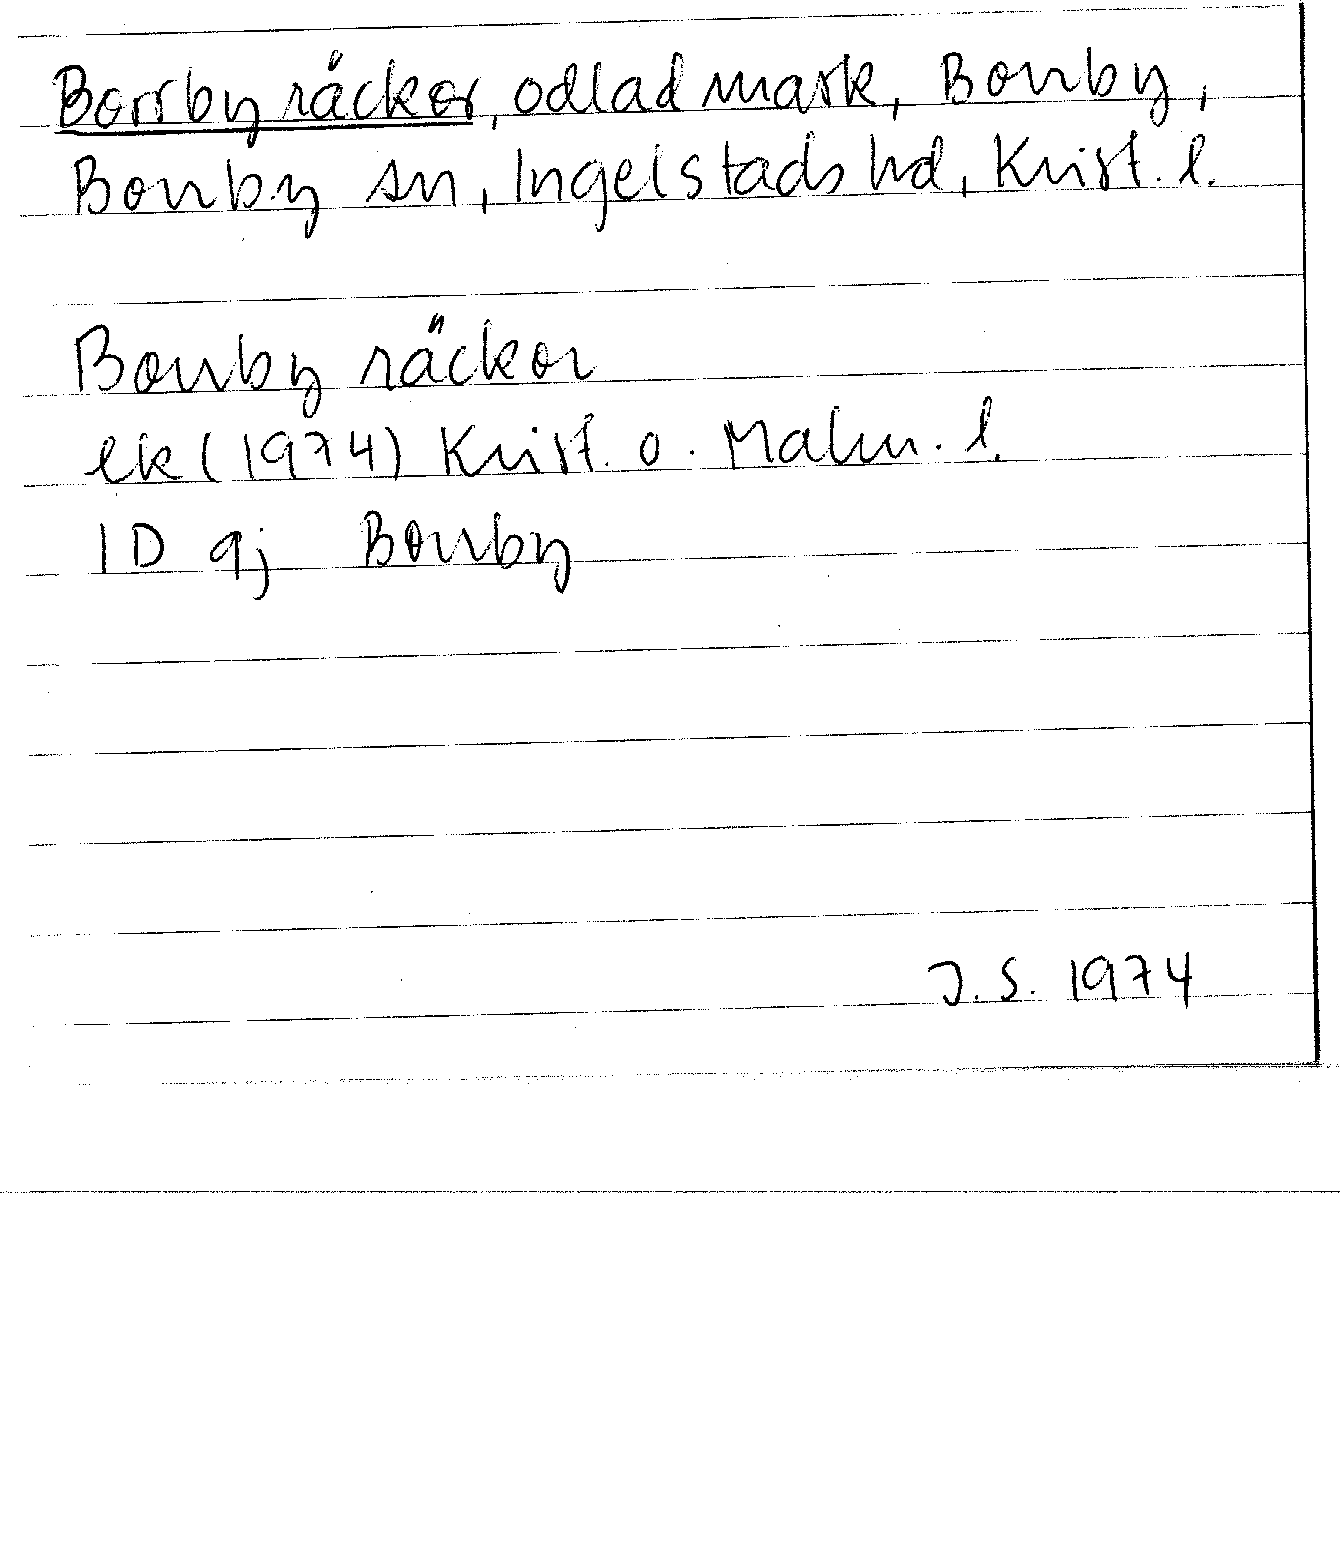 Borrby råckor, odlad mark, Borrby,
Borrby sn, Ingelstads hd, Krist. l.
Borrby räckor
ek (1974) Krist. o. Malm. l.
1D 9j Borrby
J.S. 1974